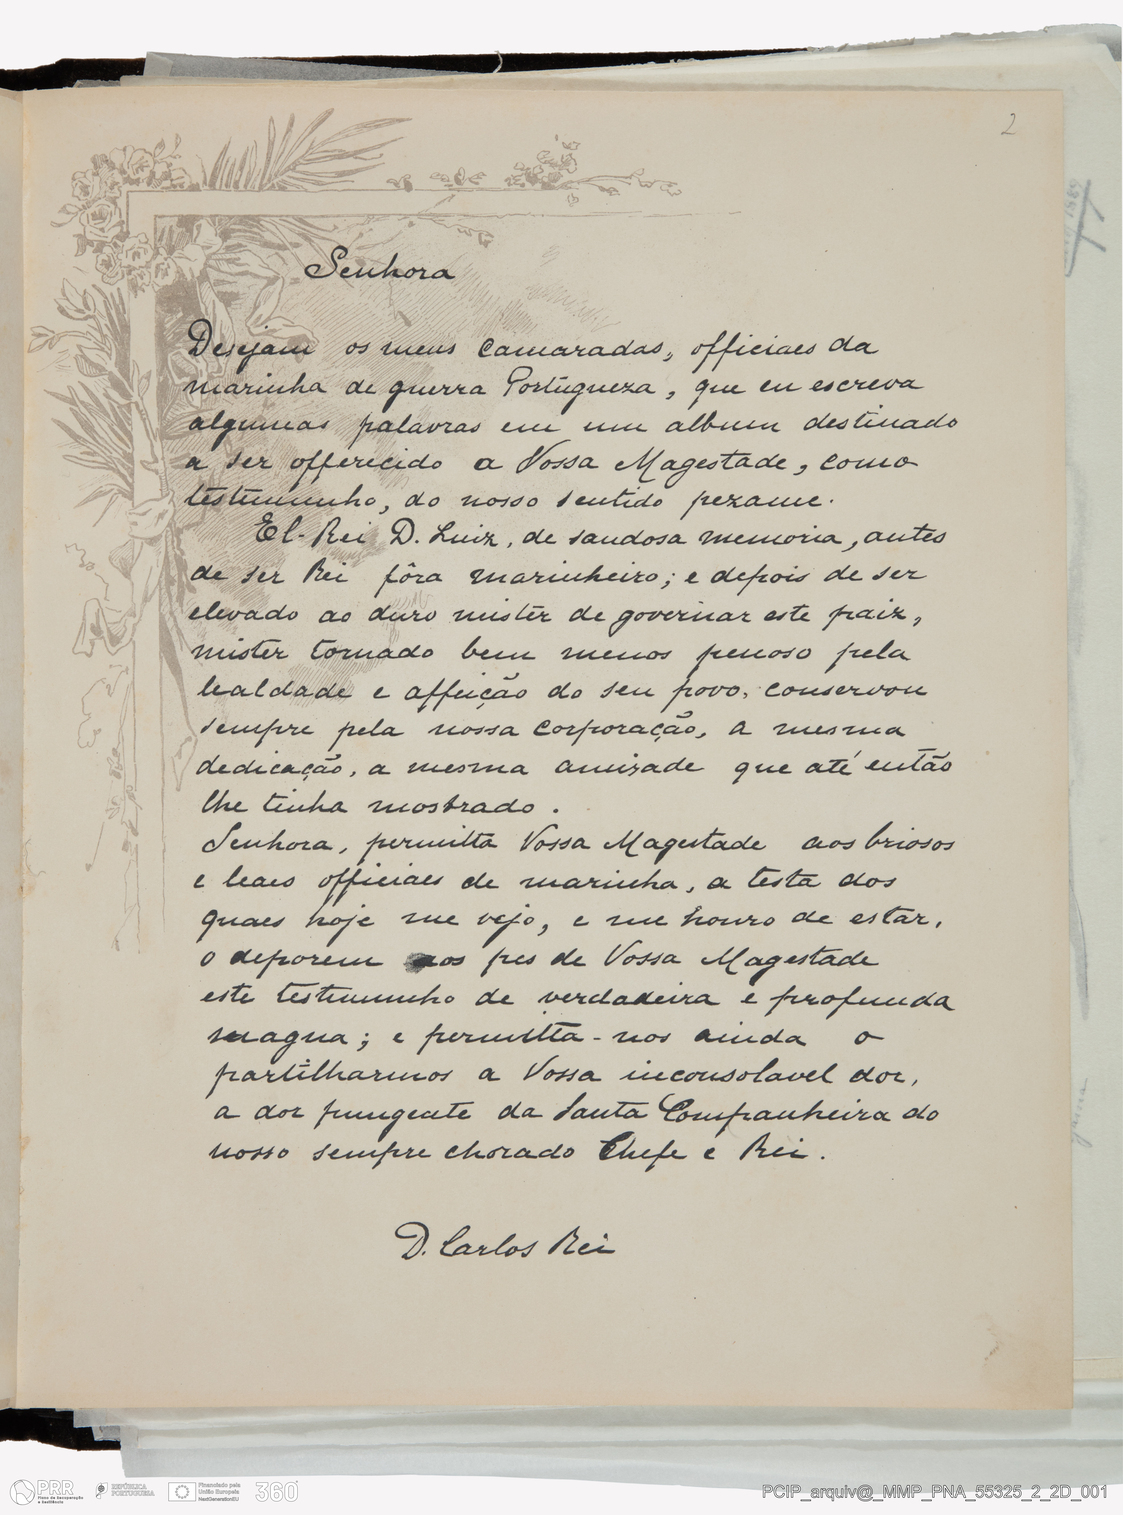 2
Senhora
Desejam os meus camaradas, officiaes da
marinha de guerra Portugueza, que eu escreva
algumas palavras em um album destinado
a ser offerecido a Vossa Magestade, como
testimunho, do nosso sentido pezame.
El-Rei D. Luiz, de saudosa memoria, antes
de ser Rei fôra marinheiro; e depois de ser
elevado ao duro mistér de governar este paiz,
mistér tornado bem menos penoso pela
lealdade e affeição do seu povo, conservou
sempre pela nossa corporação, a mesma
dedicação, a mesma amizade que até então
lhe tinha mostrado.
Senhora, permitta Vossa Magestade aos briosos
e leaes officiaes de marinha, a testa dos
quaes hoje me vejo, e me honro de estar,
o deporem aos pes de Vossa Magestade
este testimunho de verdadeira e profunda
magua; e permitta-nos ainda o
partilharmos a Vossa inconsolavel dor,
a dor pungente da Santa Companheira do
nosso sempre chorado Chefe e Rei.
D. Carlos Rei
PRR
Plano de Recuperação
e Resiliência
REPÚBLICA
PORTUGUESA
Financiado pela
União Europeia
NextGenerationEU
360°
PCIP_arquiv@_MMP_PNA_55325_2_2D_001